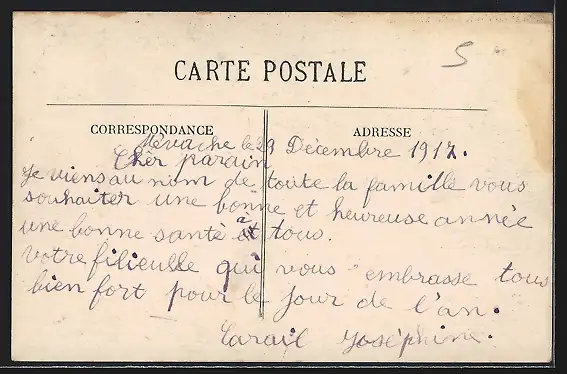 5
CARTE POSTALE
CORRESPONDANCE
ADRESSE
Nevache le 29 Décembre 1917.
Cher parain
Je viens au nom de toute la famille vous
souhaiter une bonne et heureuse année
une bonne santé à tous.
votre filieulle qui vous embrasse tous
bien fort pour le jour de l'an.
Carail Joséphine.